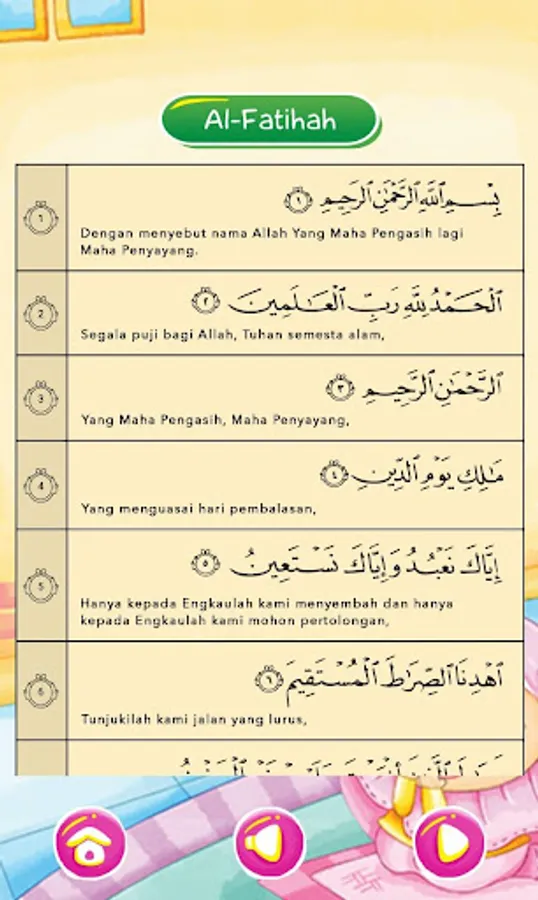 Al-Fatihah
بِسْمِ اللَّهِ الرَّحْمَٰنِ الرَّحِيمِ ١
1
Dengan menyebut nama Allah Yang Maha Pengasih lagi
Maha Penyayang.
الْحَمْدُ لِلَّهِ رَبِّ الْعَالَمِينَ ٢
2
Segala puji bagi Allah, Tuhan semesta alam,
الرَّحْمَٰنِ الرَّحِيمِ ٣
3
Yang Maha Pengasih, Maha Penyayang,
مَالِكِ يَوْمِ الدِّينِ ٤
4
Yang menguasai hari pembalasan,
إِيَّاكَ نَعْبُدُ وَإِيَّاكَ نَسْتَعِينُ ٥
5
Hanya kepada Engkaulah kami menyembah dan hanya
kepada Engkaulah kami mohon pertolongan,
اهْدِنَا الصِّرَاطَ الْمُسْتَقِيمَ ٦
6
Tunjukilah kami jalan yang lurus,